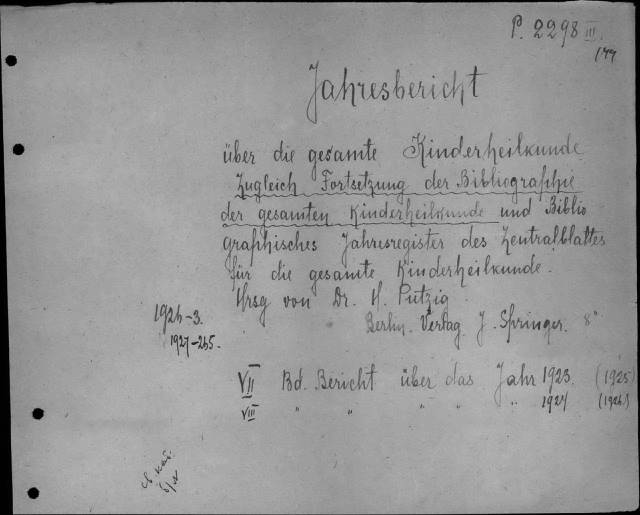 P. 2298 III.
177
Jahresbericht
über die gesamte Kinderheilkunde
Zugleich Fortsetzung der Bibliographie
der gesamten Kinderheilkunde und Biblio
graphisches Jahresregister des Zentralblattes
für die gesamte Kinderheilkunde.
Hrsg von Dr. H. Putzig
Berlin. Verlag J. Springer. 8°
1926-3.
1927-265.
VII Bd. Bericht über das Jahr 1923. (1925)
VIII " " " " " 1924 (1926)